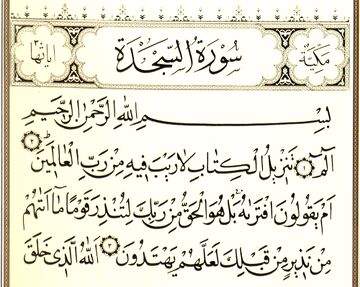 مكية سورة السجدة اياتها
بسم الله الرحمن الرحيم
الم ١ تنزيل الكتاب لا ريب فيه من رب العالمين ٢
ام يقولون افتريه بل هو الحق من ربك لتنذر قوما ما اتيهم
من نذير من قبلك لعلهم يهتدون ٣ الله الذي خلق